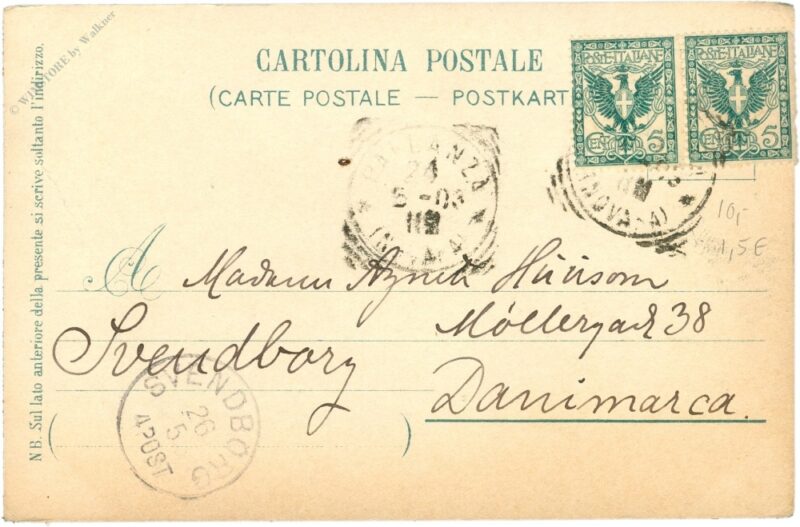 © WIESTORE by Walkner
CARTOLINA POSTALE
(CARTE POSTALE — POSTKART
POSTE·ITALIANE
CENT 5
POSTE·ITALIANE
CENT 5
PALLANZA
24
5-03
(NOVARA)
(NOVARA)
10,-
1,5€
A Madame Agnete
Möllergade 38
Svendborg
Danimarca.
SVENDBORG
26
5
4POST
NB. Sul lato anteriore della presente si scrive soltanto l'indirizzo.